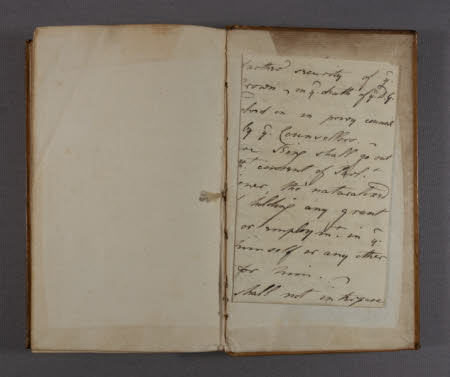 farther security of yͤ
Crown, in yͤ death of yͤ D. G.
in privy council
by yͤ Counsellors.
King shall go out
consent of Parlᵗ.
tho' naturalized
holding any grant
or employmᵗ. in yͤ
himself or any other
for him.
shall not in